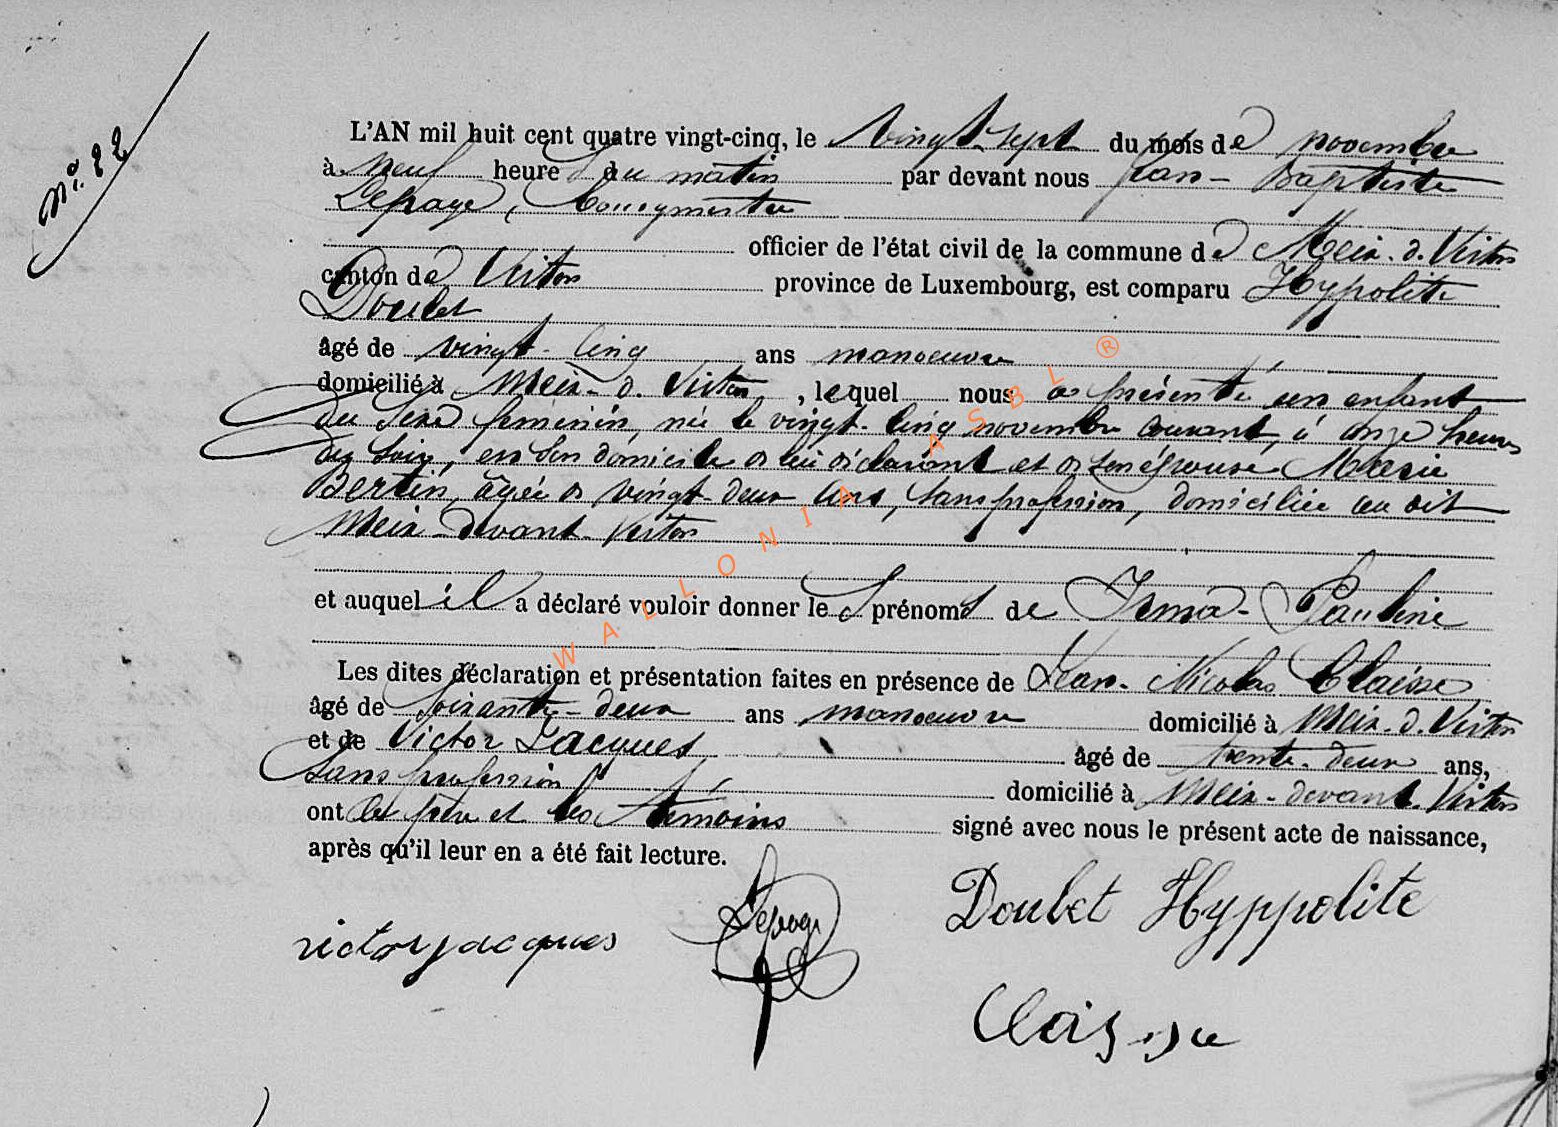 N.° 22
L'AN mil huit cent quatre vingt-cinq, le vingt-sept du mois de novembre
à neuf heures du matin par devant nous Jean-Baptiste
Lepage, bourgmestre
officier de l'état civil de la commune de Meix-d. Virton
canton de Virton province de Luxembourg, est comparu Hypolite
Doulet
âgé de vingt-cinq ans manoeuvre
domicilié à Meix-d. Virton, lequel nous a présenté un enfant
du sexe féminin, née le vingt-cinq novembre courant, à onze heures
du soir, en son domicile de lui déclarant et de son épouse Marie
Bertin, âgée de vingt-deux ans, sans profession, domiciliée au dit
Meix-devant-Virton
et auquel il a déclaré vouloir donner les prénoms de Irma-Pauline
Les dites déclaration et présentation faites en présence de Jean-Nicolas Claisse
âgé de soixante-deux ans manoeuvre domicilié à Meix-d. Virton
et de Victor Jacques âgé de trente-deux ans,
sans profession domicilié à Meix-devant-Virton
ont le père et les témoins signé avec nous le présent acte de naissance,
après qu'il leur en a été fait lecture.
victor jacques Lepage Doulet Hyppolite
Claisse
WALLONIA ASBL ®